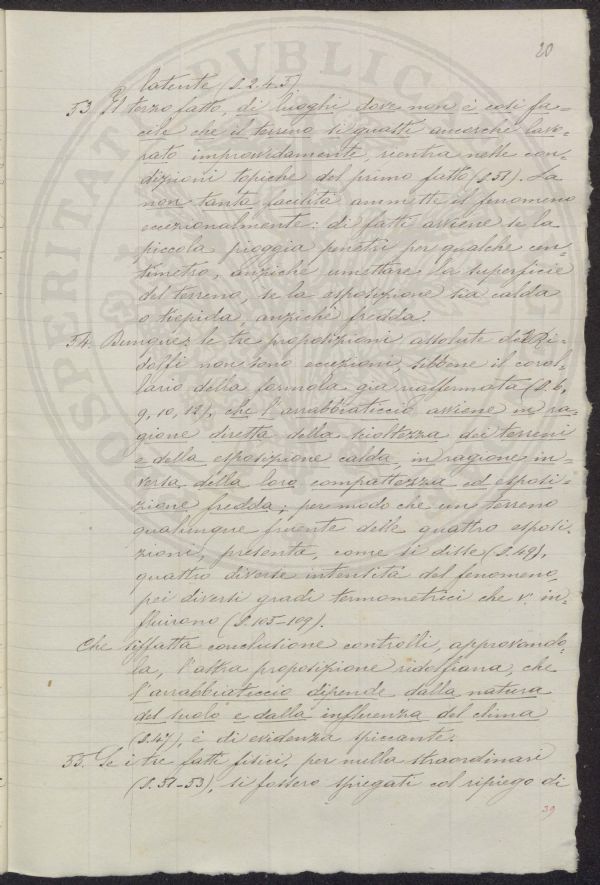 20
latente (S. 2. 4. 5)
53. Il terzo fatto, di luoghi dove non è così fa-
cile che il terreno si guasti ancorchè lavo-
rato improvvidamente, rientra nelle con-
dizioni topiche del primo fatto (S. 51). La
non tanta facilità ammette il fenomeno
eccezionalmente: di fatti avviene se la
piccola pioggia penetri per qualche cen-
timetro, anzichè umettare la superficie
del terreno, se la esposizione sia calda
o tiepida anzichè fredda.
54. Dunque le tre proposizioni assolute del Ri-
dolfi non sono eccezioni, sibbene il corol-
lario della formola già riaffermata (S. 6,
9, 10, 12), che l'arrabbiaticcio avviene in ra-
gione diretta della scioltezza dei terreni
e della esposizione calda, in ragione in-
versa della loro compattezza ed esposi-
zione fredda; per modo che un terreno
qualunque fruente delle quattro esposi-
zioni, presenta, come si disse (S. 49),
quattro diverse intensità del fenomeno,
pei diversi gradi termometrici che v'in-
fluirono (S. 105-109).
Che siffatta conclusione controlli, approvando-
la, l'altra proposizione ridolfiana, che
l'arrabbiaticcio dipende dalla natura
del suolo e dalla influenza del clima
(S. 47), è di evidenza spiccante.
55. Se i tre fatti fisici, per nulla straordinari
(S. 51-53), si fossero spiegati col ripiego di
39
PROSPERITATI PVBLICAE